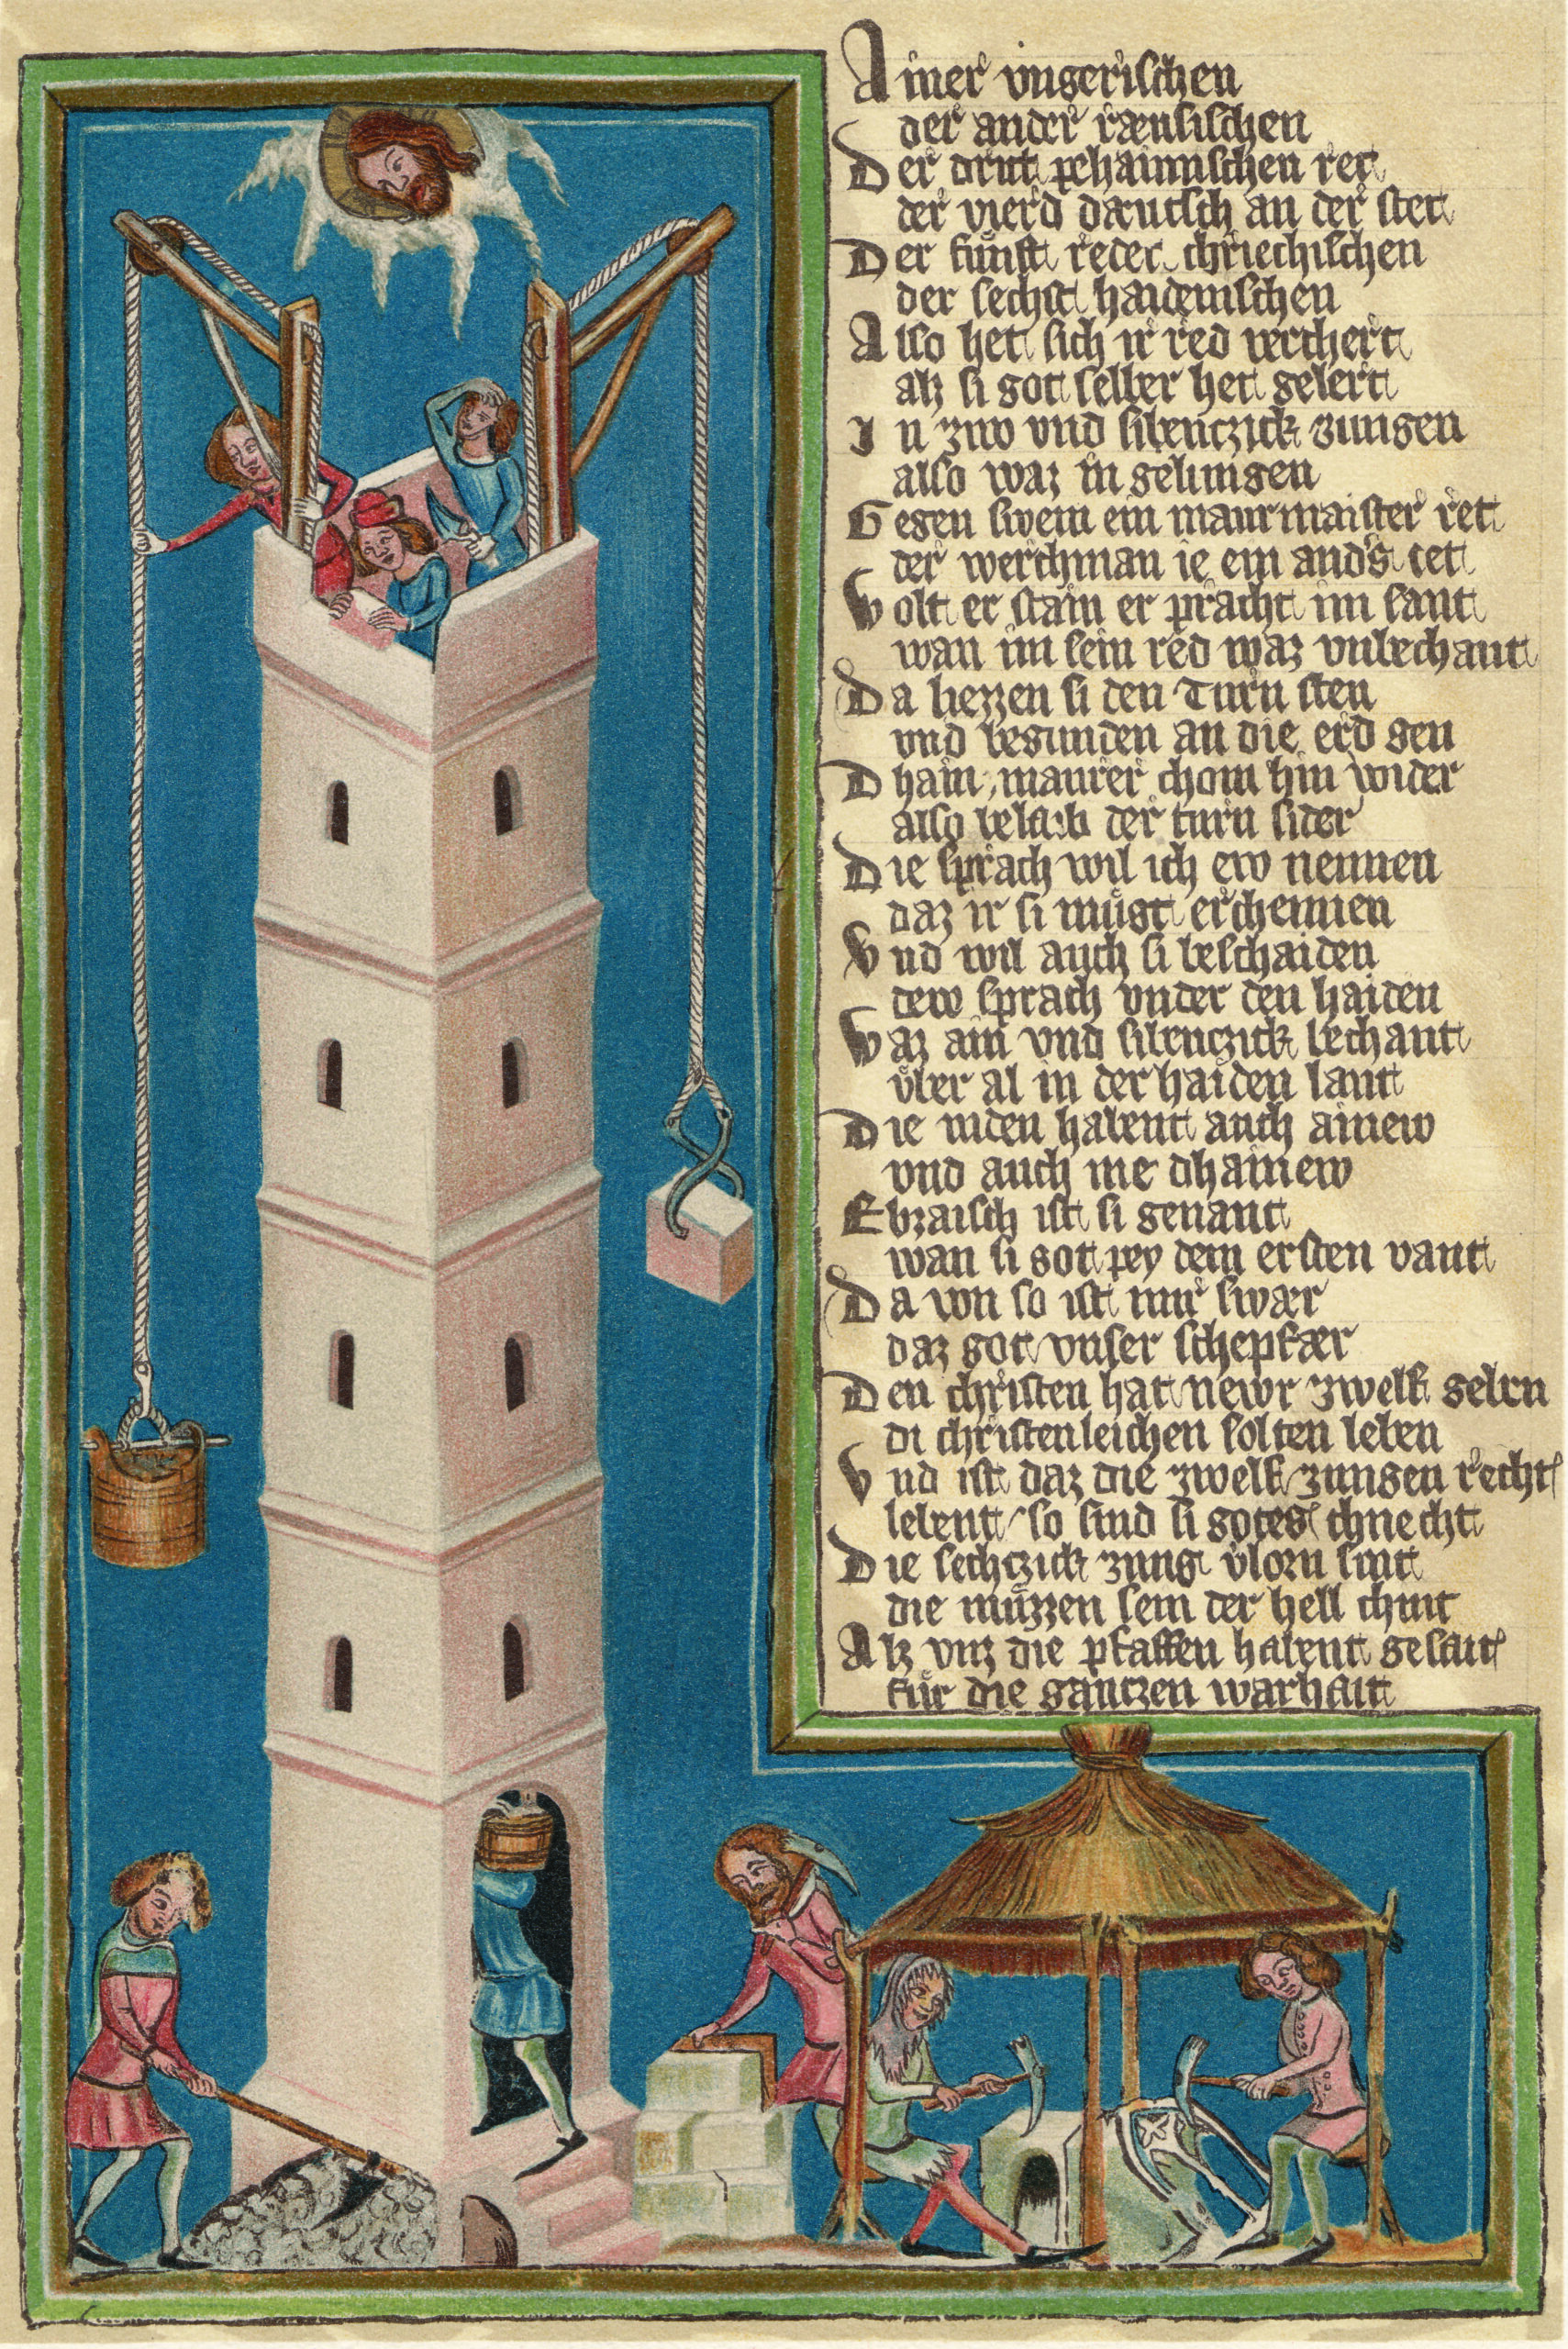 Ainer vngerischen
der ander ræusischen
Der drit pehaimischen ret
der vierd dæutsch an der stet
Der fünft redet chriechischen
der sechst haidenischen
Also het sich ir red verchert
alz si got selber het gelert
In zwo vnd sibenczick zungen
also waz in gelungen
Gegen swem ein maurmaister ret
der werchman ie ein anders tet
Wolt er stain er pracht im sant
wan im sein red waz vnbechant
Da liezzen si den Turn sten
vnd begunden an die erd gen
Dhain maurer chom hin wider
also belaib der turn sider
Die sprach wil ich ew nennen
daz ir si mügt erchennen
Vnd wil auch si beschaiden
dew sprach vnder den haiden
Waz ain vnd sibenczick bechant
über al in der haiden lant
Die iuden habent auch ainew
vnd auch me dhainew
Ebraisch ist si genant
wan si got pey dem ersten vant
Da von so ist mir swær
daz got vnser schepfær
Den christen hat newr zwelf geben
di christenleichen solten leben
Vnd ist daz die zwelf zungen recht
lebent so sind si gotes chnecht
Die sechczick zung vlorn sint
die müzzen sein der hell chint
Alz vnz die pfaffen habent gesait
für die gantzen warhait